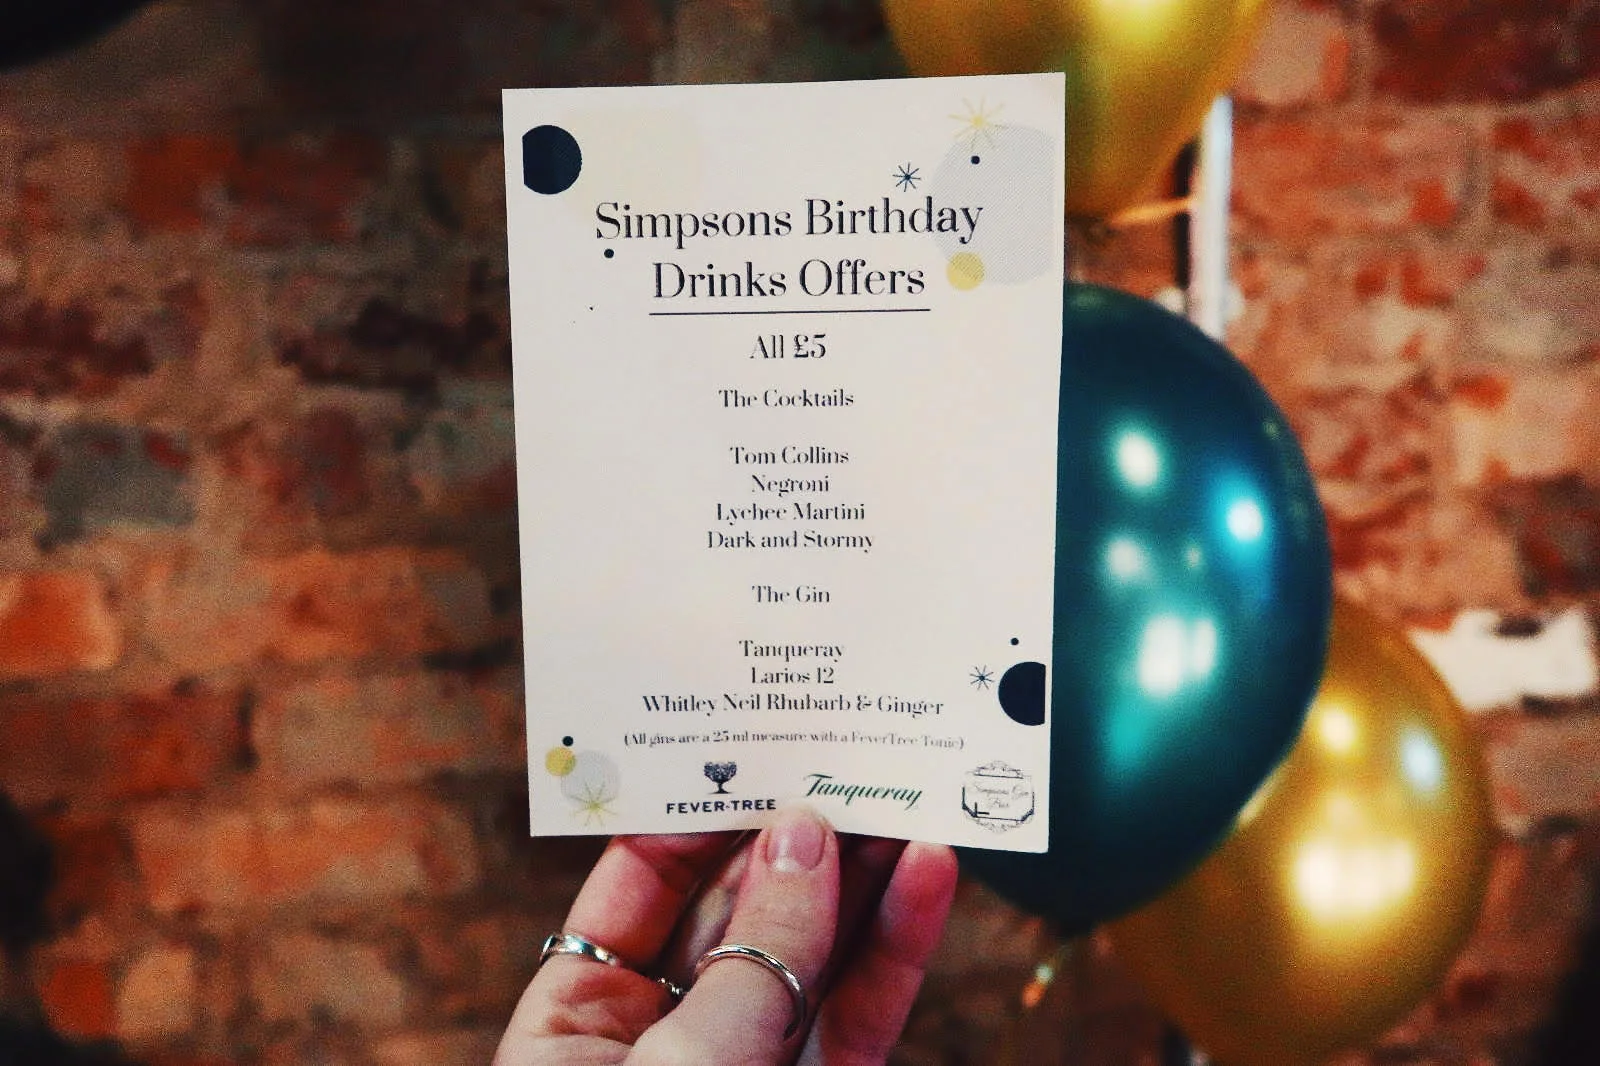 Simpsons Birthday
Drinks Offers
All £5
The Cocktails
Tom Collins
Negroni
Lychee Martini
Dark and Stormy
The Gin
Tanqueray
Larios 12
Whitley Neil Rhubarb & Ginger
(All gins are a 25 ml measure with a FeverTree Tonic)
FEVER-TREE
Tanqueray
Simpsons Gin
Bar